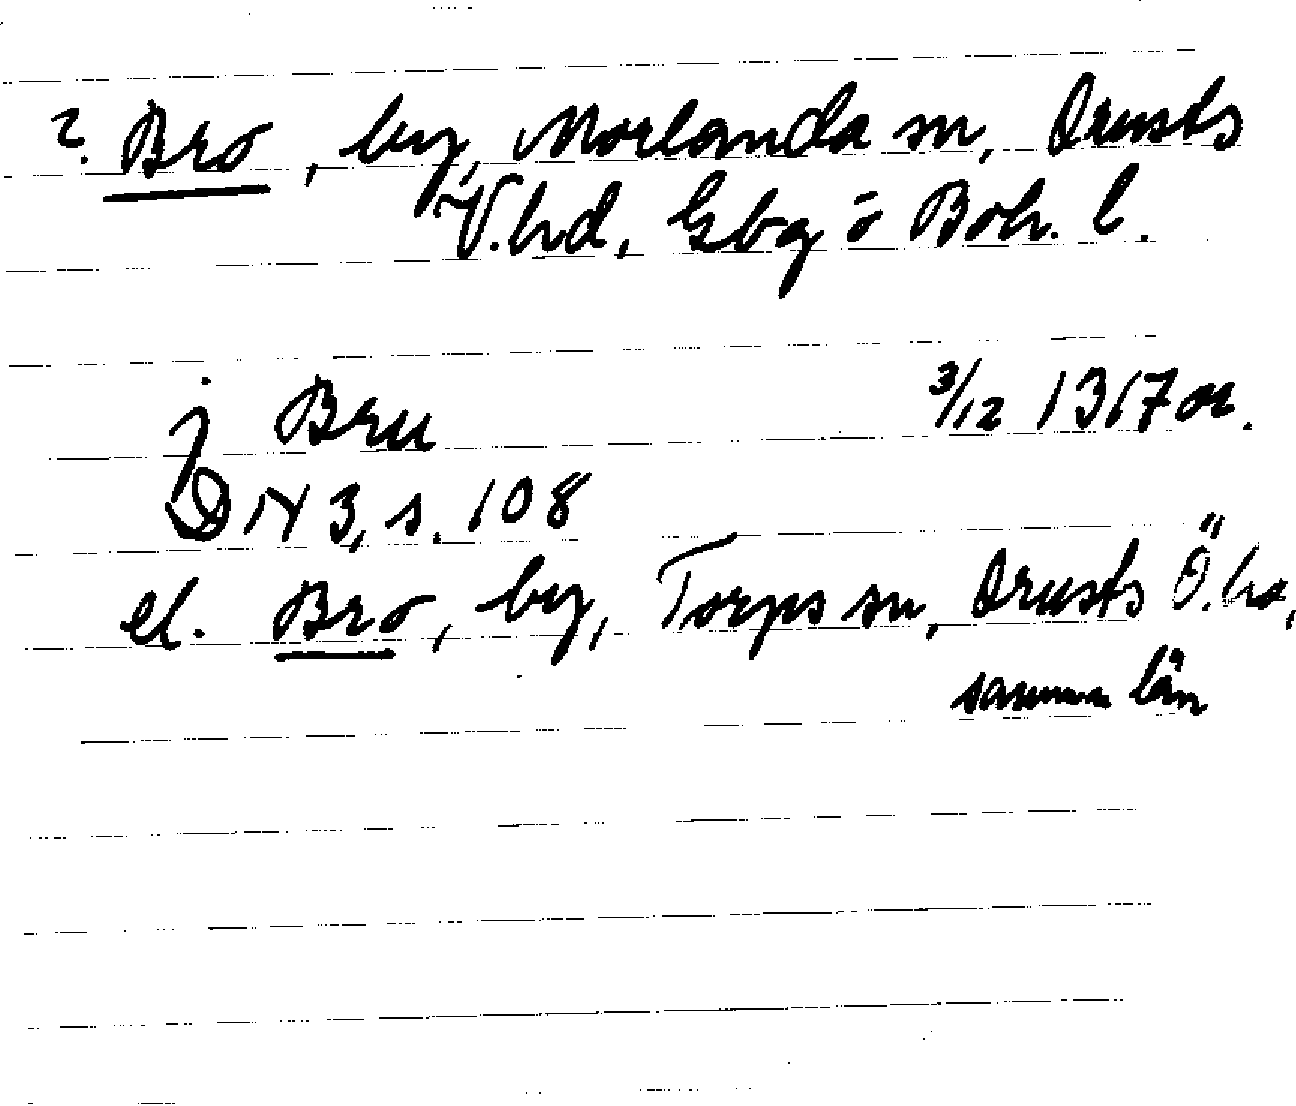 ?. Bro, by, Morlanda sn, Orusts
V. hd, Gbg o Boh. l.
j Bru 3/12 1317 or.
DN 3, s. 108
el. Bro, by, Torps sn, Orusts Ö. hd,
samma län